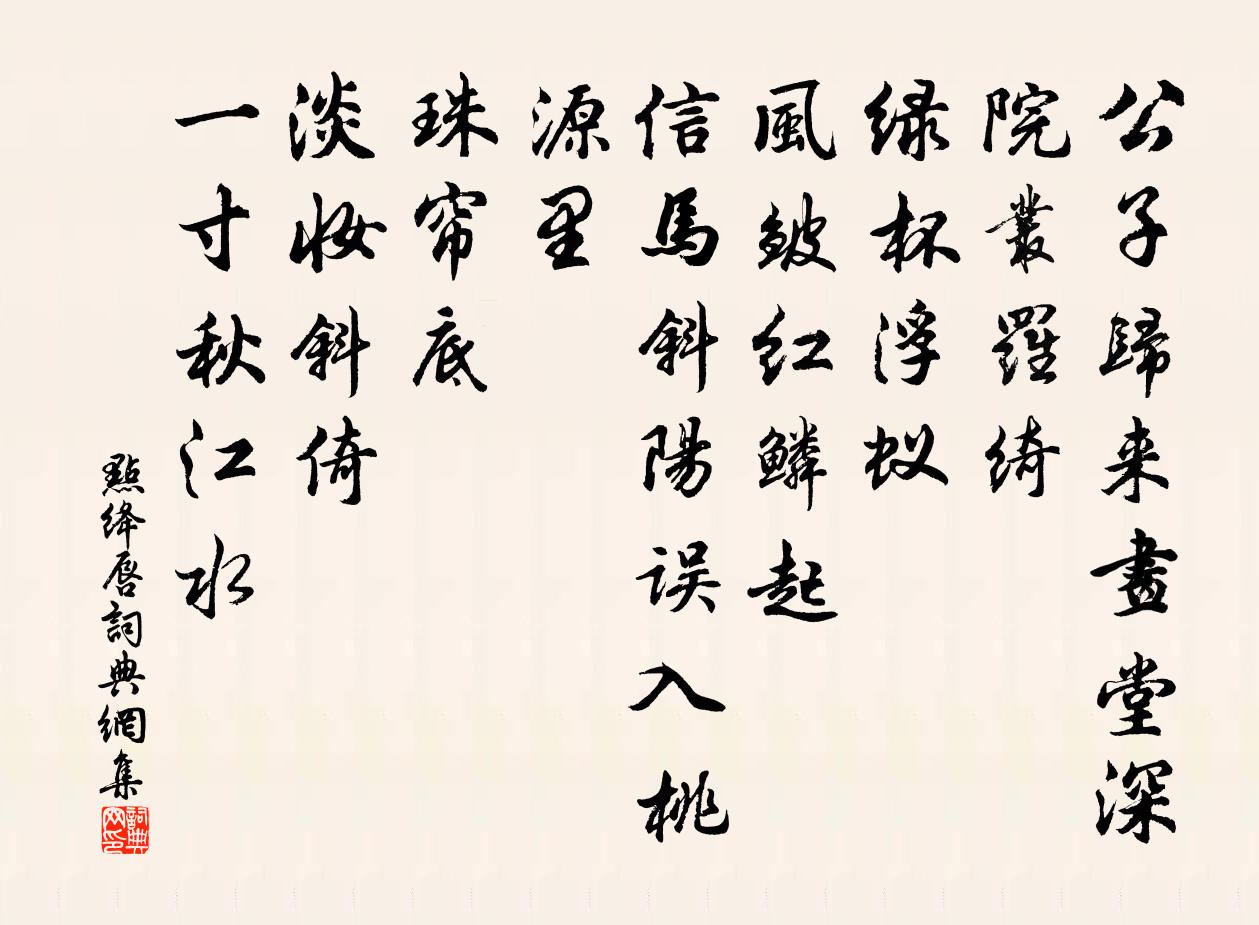 公子歸来畫堂深
院叢羅綺
緑杯浮蚁
風皴红鱗起
信馬斜陽误入桃
源里
珠帘底
淡妝斜倚
一寸秋江水
點绛唇詞典網集
詞典网印